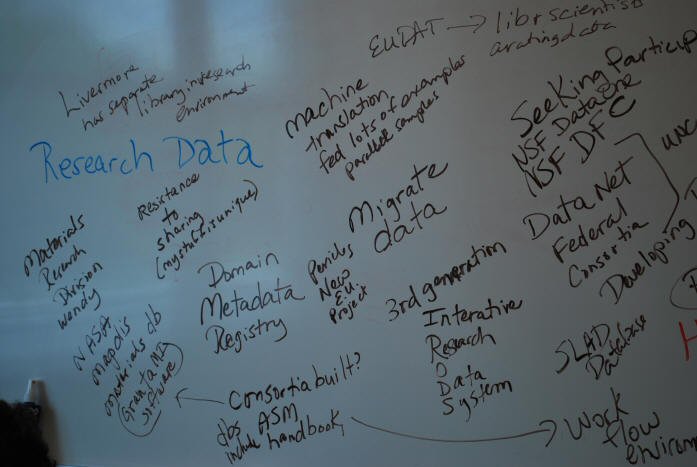 Livermore
has separate
library in research
environment
EUDAT → libr scientists
Research Data
machine
translation
fed lots of examples
parallel samples
Seeking Particip
NSF DataOne
NSF DFC
Materials
Research
Division
Wendy
Resistance
to
sharing
Migrate
data
DataNet
Federal
Consortia
Developing
Domain
Metadata
Registry
New
E.U.
Project
3rd generation
Interative
Research
Data
System
NASA
materials db
Granta MI
software
SLAD
Database
Consortia built?
dbs ASM
include handbook,
Work
flow
environm